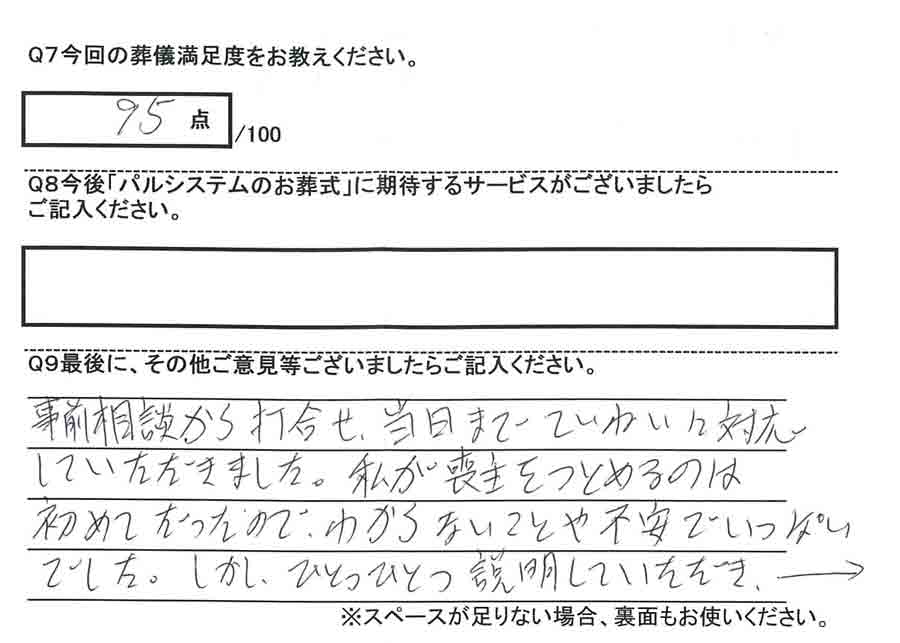 Q7今回の葬儀満足度をお教えください。
95 点 /100
Q8今後「パルシステムのお葬式」に期待するサービスがございましたら
ご記入ください。
Q9最後に、その他ご意見等ございましたらご記入ください。
事前相談から打合せ、当日までていねいに対応
していただきました。私が喪主をつとめるのは
初めてだったので、わからないことや不安でいっぱい
でした。しかし、ひとつひとつ説明していただき、→
※スペースが足りない場合、裏面もお使いください。